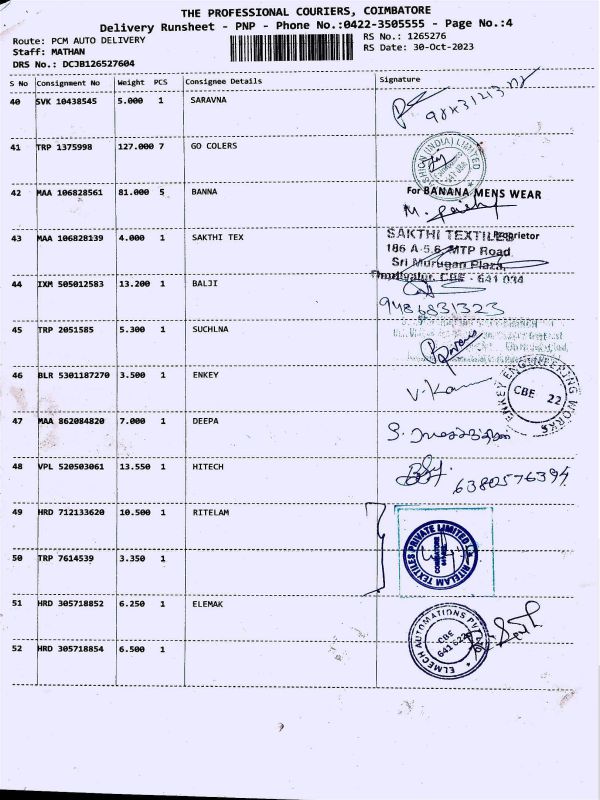 THE PROFESSIONAL COURIERS, COIMBATORE
Delivery Runsheet - PNP - Phone No.:0422-3505555 - Page No.:4
Route: PCM AUTO DELIVERY
RS No.: 1265276
Staff: MATHAN
RS Date: 30-Oct-2023
DRS No.: DC3B126527604
S No Consignment No Weight PCS Consignee Details Signature
40 SVK 10438545 5.000 1 SARAVNA
41 TRP 1375998 127.000 7 GO COLERS
(INDIA) LIMITED
42 MAA 106828561 81.000 5 BANNA
For BANANA MENS WEAR
Proprietor
43 MAA 106828139 4.000 1 SAKTHI TEX
SAKTHI TEXTILES
186 A-5,6, MTP Road
Sri Murugan Plaza,
CBE - 641 034
44 IXM 505012583 13.200 1 BALJI
9486831323
45 TRP 2051585 5.300 1 SUCHLNA
46 BLR 5301187270 3.500 1 ENKEY
ENKEY ENGINEERING WORKS
CBE 22
47 MAA 862084820 7.000 1 DEEPA
48 VPL 520503061 13.550 1 HITECH
6380576394
49 HRD 712133620 10.500 1 RITELAM
RITELAM TEXTILES PRIVATE LIMITED
COIMBATORE
50 TRP 7614539 3.350 1
51 HRD 305718852 6.250 1 ELEMAK
ELMECH AUTOMATIONS PVT
CBE
52 HRD 305718854 6.500 1